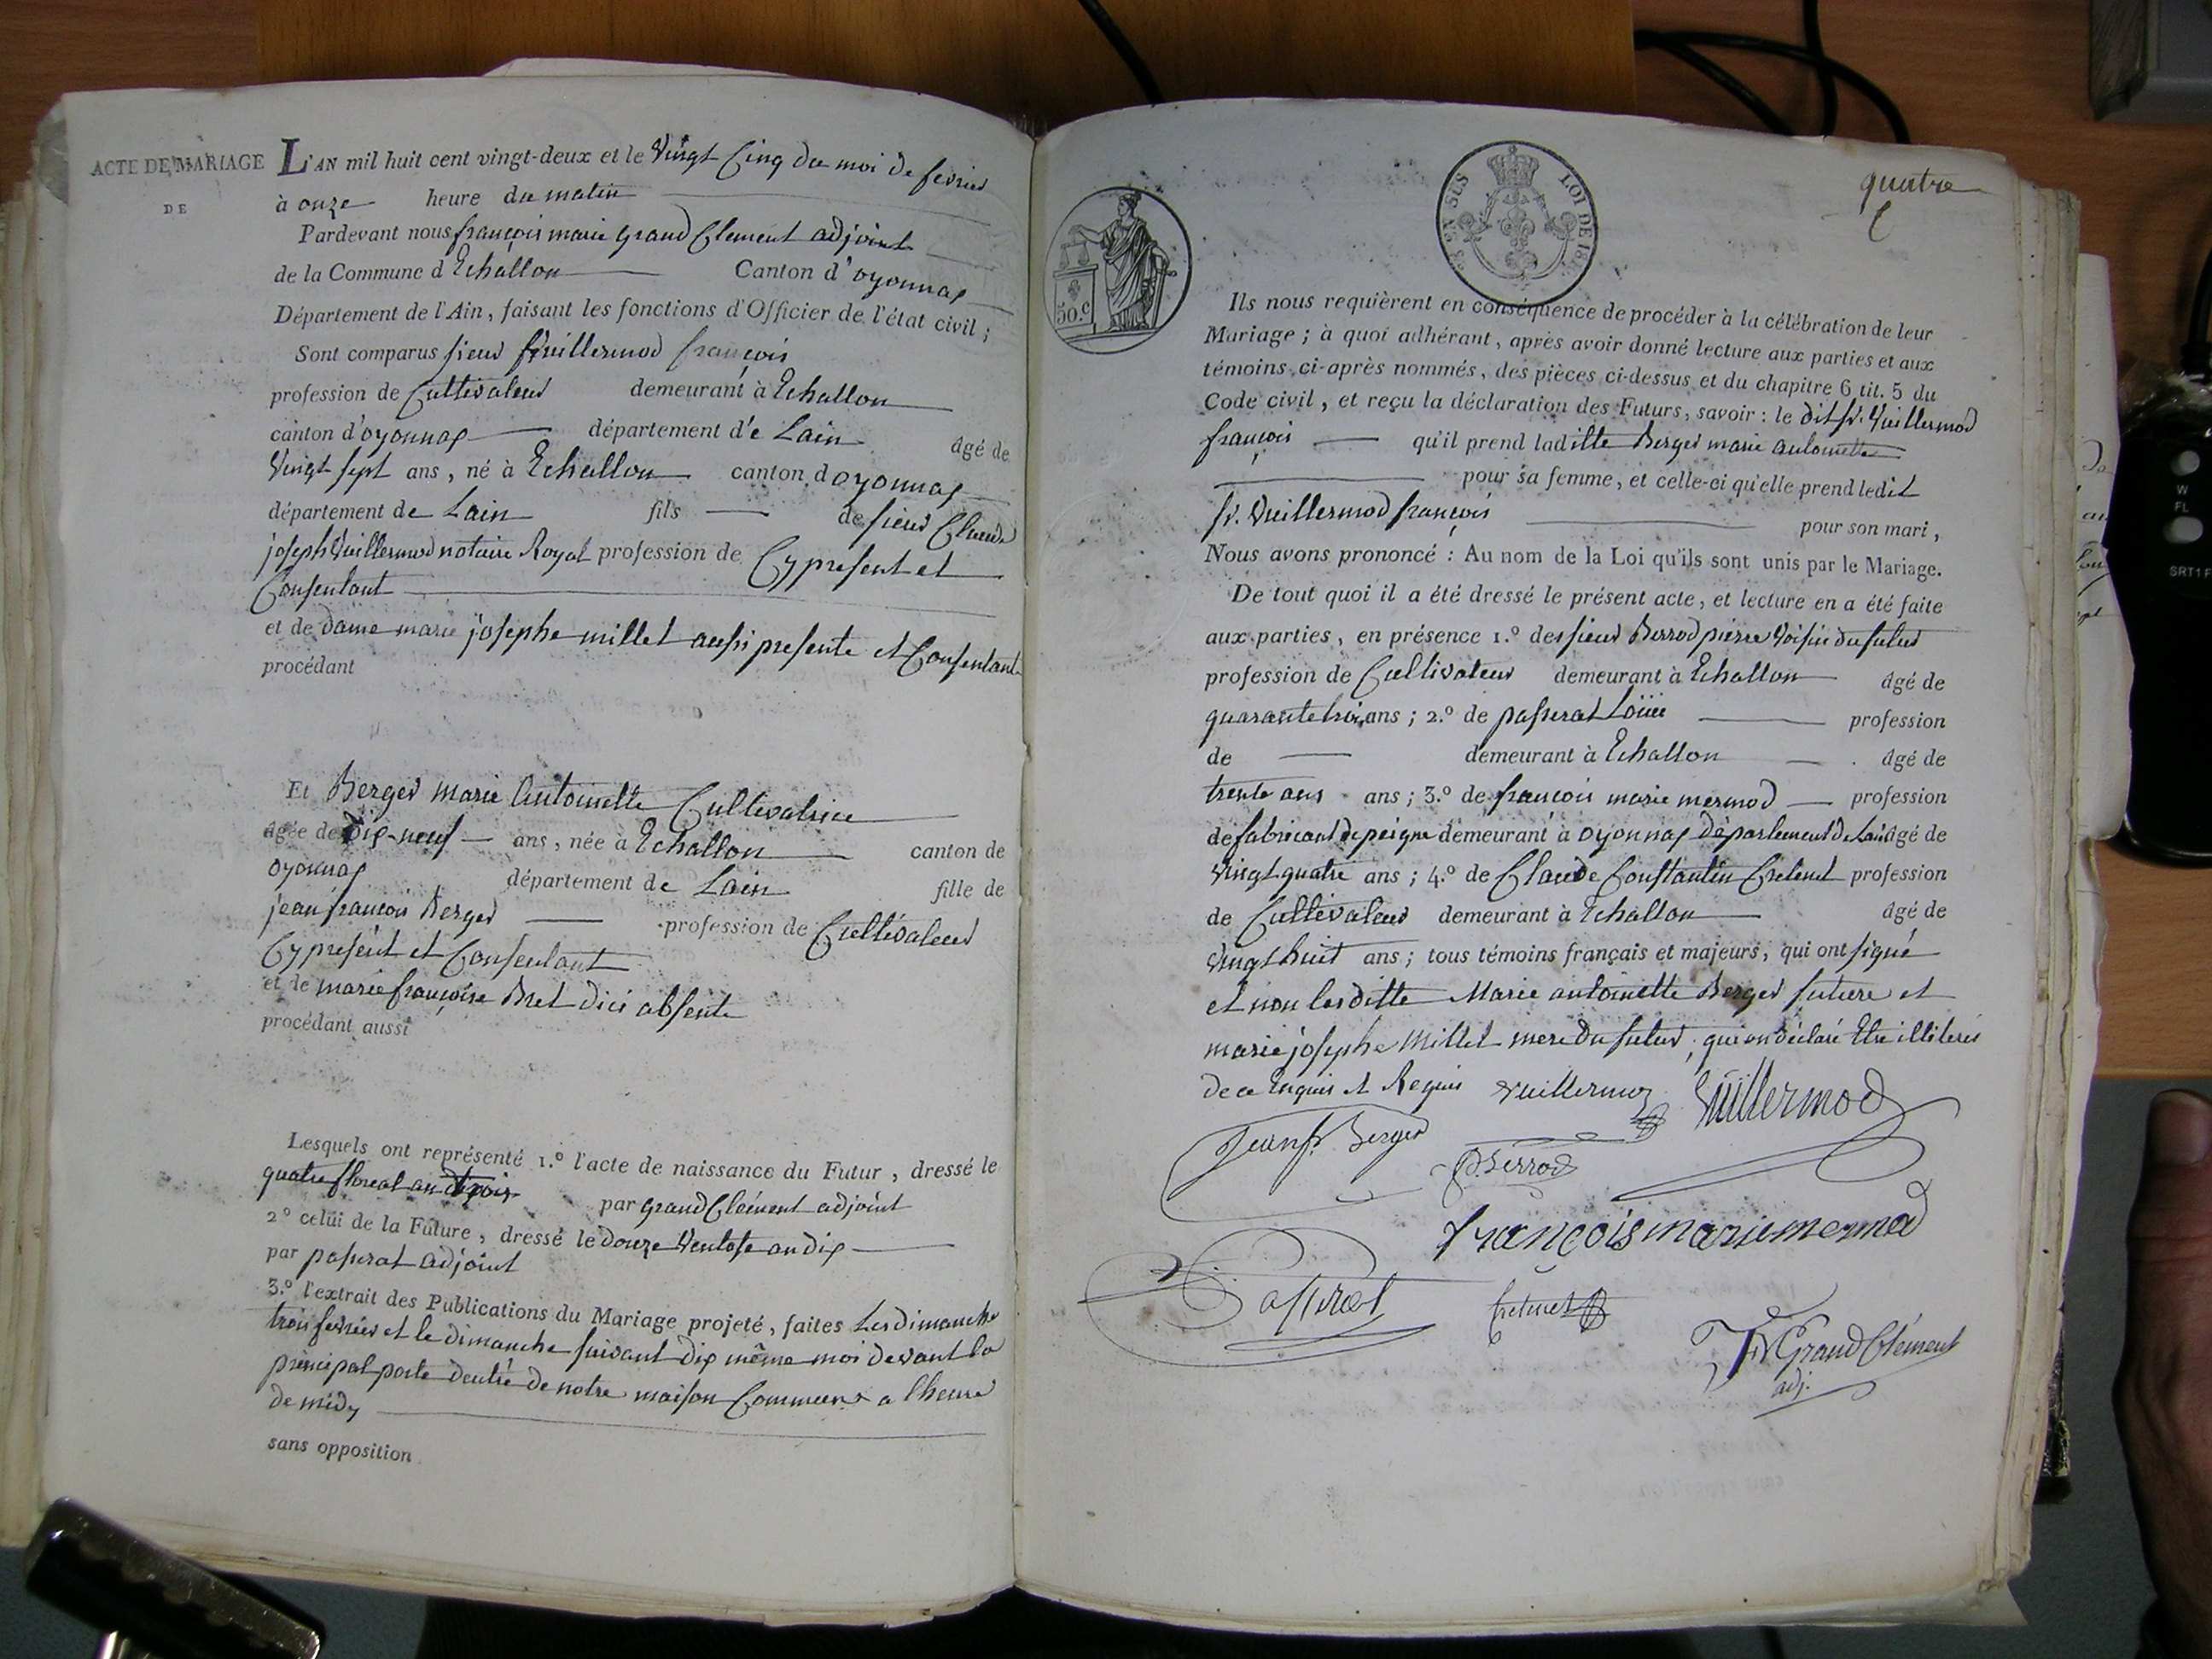 ACTE DE MARIAGE
DE
L'AN mil huit cent vingt-deux et le vingt Cinq du moi de fevrier
à onze heure du matin
Pardevant nous françois marie grand Clement adjoint
de la Commune d'Echallon Canton d'oyonnax
Département de l'Ain, faisant les fonctions d'Officier de l'état civil;
Sont comparus sieur Vuillermod françois
profession de Cultivateur demeurant à Echallon
canton d'oyonnax département de Lain âgé de
vingt sept ans, né à Echallon canton d'oyonnax
département de Lain fils de sieur Claude
joseph Vuillermod notaire Royal profession de Cy present et
Consentant
et de dame marie josephe millet aussi presente et Consentante
procédant
Et Berger marie Antoinette Cultivatrice
âgée de dix-neuf ans, née à Echallon canton de
oyonnax département de Lain fille de
jean françois Berger profession de Cultivateur
Cy present et Consentant
et de marie françoise Bret dici absente
procédant aussi
Lesquels ont représenté 1.º l'acte de naissance du Futur, dressé le
quatre floreal an trois par grand Clément adjoint
2º celui de la Future, dressé le douze Ventose an dix
par passerat adjoint
3.º l'extrait des Publications du Mariage projeté, faites Les dimanche
trois fevrier et le dimanche suivant dix même moi devant la
principal porte dentré de notre maison Commune a lheure
de midy
sans opposition
quatre
EN SUS LOI DE
50.c
Ils nous requièrent en conséquence de procéder à la célébration de leur
Mariage; à quoi adhérant, après avoir donné lecture aux parties et aux
témoins, ci-après nommés, des pièces ci-dessus et du chapitre 6 tit. 5 du
Code civil, et reçu la déclaration des Futurs, savoir: le dit sr. Vuillermod
françois qu'il prend laditte Berger marie antoinette
pour sa femme, et celle-ci qu'elle prend ledit
sr. Vuillermod françois pour son mari,
Nous avons prononcé: Au nom de la Loi qu'ils sont unis par le Mariage.
De tout quoi il a été dressé le présent acte, et lecture en a été faite
aux parties, en présence 1.º des sieur Berrod pierre voisin du futur
profession de Cultivateur demeurant à Echallon âgé de
quarante trois ans; 2.º de passerat Loüis profession
de demeurant à Echallon âgé de
trente ans ans; 3.º de françois marie mermod profession
de fabricant de peigne demeurant à oyonnax département de Lain âgé de
vingt quatre ans; 4.º de Claude Constantin Cretenet profession
de Cultivateur demeurant à Echallon âgé de
vingt huit ans; tous témoins français et majeurs, qui ont signé
et non les ditte Marie antoinette Berger future et
marie josephe Millet mere du futur, qui on déclaré Etre illiterés
de ce Enquis et Requis vuillermoz Vuillermod
Jean fr. Berger
P. Berrod
françois marie mermod
Passerat
Cretenet
Grand Clément
adj.